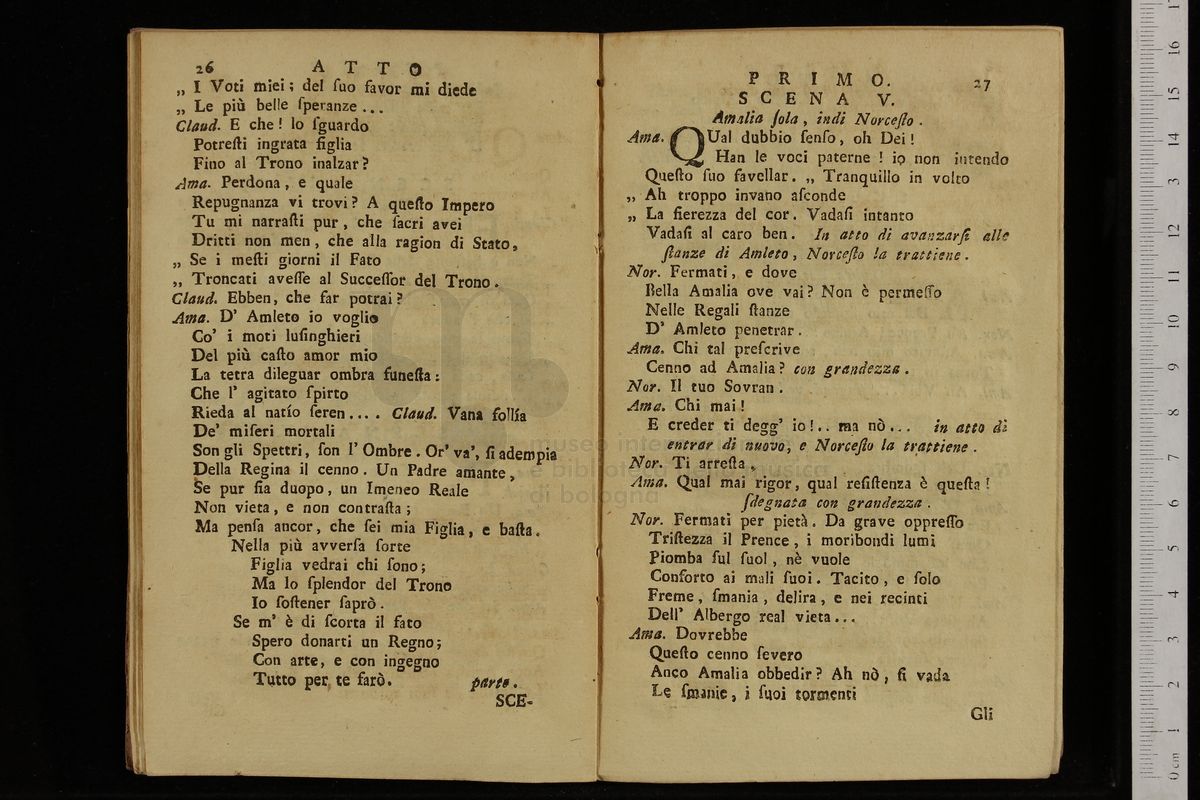 26 ATTO
„ I Voti miei; del ſuo favor mi diede
„ Le più belle ſperanze...
Claud. E che! lo ſguardo
Potreſti ingrata figlia
Fino al Trono inalzar?
Ama. Perdona, e quale
Repugnanza vi trovi? A queſto Impero
Tu mi narraſti pur, che ſacri avei
Dritti non men, che alla ragion di Stato,
„ Se i meſti giorni il Fato
„ Troncati aveſſe al Succeſſor del Trono.
Claud. Ebben, che far potrai?
Ama. D' Amleto io voglio
Co' i moti luſinghieri
Del più caſto amor mio
La tetra dileguar ombra funeſta:
Che l' agitato ſpirto
Rieda al natío ſeren.... Claud. Vana follía
De' miſeri mortali
Son gli Spettri, ſon l' Ombre. Or' va', ſi adempia
Della Regina il cenno. Un Padre amante,
Se pur ſia duopo, un Imeneo Reale
Non vieta, e non contraſta;
Ma penſa ancor, che ſei mia Figlia, e baſta.
Nella più avverſa ſorte
Figlia vedrai chi ſono;
Ma lo ſplendor del Trono
Io ſoſtener ſaprò.
Se m' è di ſcorta il fato
Spero donarti un Regno;
Con arte, e con ingegno
Tutto per te farò. parte.
SCE-
PRIMO. 27
SCENA V.
Amalia ſola, indi Norceſto.
Ama. QUal dubbio ſenſo, oh Dei!
Han le voci paterne! io non intendo
Queſto ſuo favellar. „ Tranquillo in volto
„ Ah troppo invano aſconde
„ La fierezza del cor. Vadaſi intanto
Vadaſi al caro ben. In atto di avanzarſi alle
ſtanze di Amleto, Norceſto la trattiene.
Nor. Fermati, e dove
Bella Amalia ove vai? Non è permeſſo
Nelle Regali ſtanze
D' Amleto penetrar.
Ama. Chi tal preſcrive
Cenno ad Amalia? con grandezza.
Nor. Il tuo Sovran.
Ama. Chi mai!
E creder ti degg' io!.. ma nò... in atto di
entrar di nuovo, e Norceſto la trattiene.
Nor. Ti arreſta.
Ama. Qual mai rigor, qual reſiſtenza è queſta!
ſdegnata con grandezza.
Nor. Fermati per pietà. Da grave oppreſſo
Triſtezza il Prence, i moribondi lumi
Piomba ſul ſuol, nè vuole
Conforto ai mali ſuoi. Tacito, e ſolo
Freme, ſmania, delira, e nei recinti
Dell' Albergo real vieta...
Ama. Dovrebbe
Queſto cenno ſevero
Anco Amalia obbedir? Ah nò, ſi vada
Le ſmanie, i ſuoi tormenti
Gli
museo inte
e biblioteca della musica
di bologna
0 cm 1 2 3 4 5 6 7 8 9 10 11 12 13 14 15 16 17